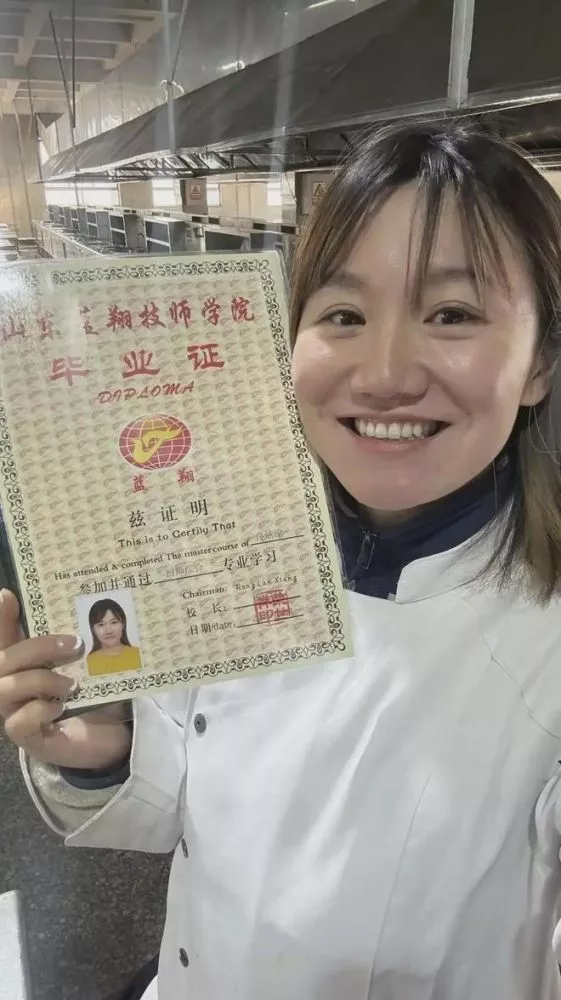 山东蓝翔技师学院
毕业证
DIPLOMA
蓝翔
兹证明
This is to Certify That
Has attended & completed The master course of
参加并通过 厨师综合 专业学习
Chairman: Rong Lan Xiang
校 长:
日期/date: